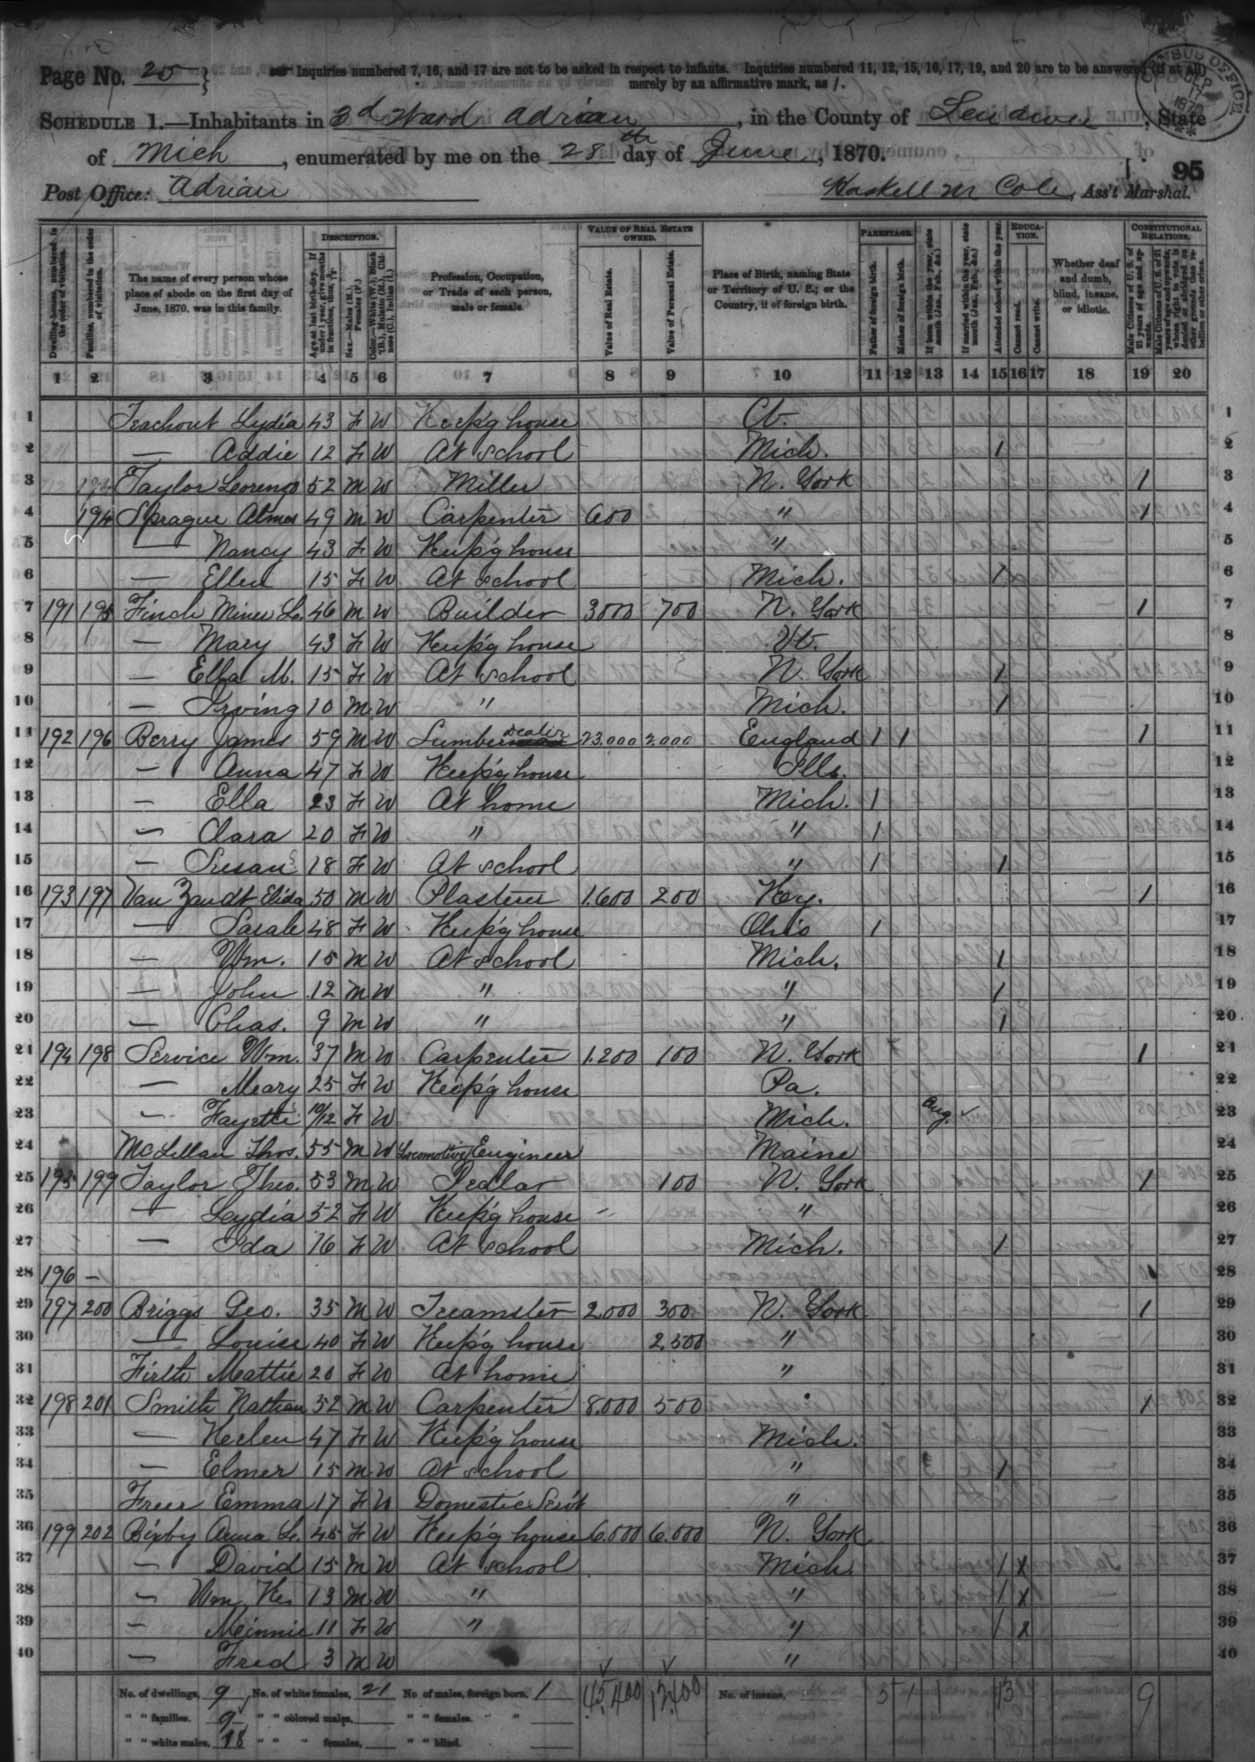 Page No. 25
Inquiries numbered 7, 16, and 17 are not to be asked in respect to infants. Inquiries numbered 11, 12, 15, 16, 17, 19, and 20 are to be answered (if at all)
merely by an affirmative mark, as /.
SCHEDULE 1.—Inhabitants in 3d Ward Adrian, in the County of Lenawee, State
of Mich, enumerated by me on the 28th day of June, 1870.
95
Post Office: Adrian
Haskell M Cole, Ass't Marshal.
DESCRIPTION.
VALUE OF REAL ESTATE OWNED.
PARENTAGE.
EDUCATION.
CONSTITUTIONAL RELATIONS.
The name of every person whose place of abode on the first day of June, 1870, was in this family.
Profession, Occupation, or Trade of each person, male or female.
Value of Real Estate.
Value of Personal Estate.
Place of Birth, naming State or Territory of U. S.; or the Country, if of foreign birth.
Father of foreign birth.
Mother of foreign birth.
Attended school within the year.
Cannot read.
Cannot write.
Whether deaf and dumb, blind, insane, or idiotic.
1 2 3 4 5 6 7 8 9 10 11 12 13 14 15 16 17 18 19 20
1 Teachout Lydia 43 F W Keep'g house Ct. 1
2 — Addie 12 F W At school Mich. 1 2
3 Taylor Lorenzo 52 M W Miller N. York 1 3
4 194 Sprague Almos 49 M W Carpenter 600 " 1 4
5 — Nancy 43 F W Keep'g house " 5
6 — Ellen 15 F W At school Mich. 1 6
7 191 195 Finch Miner L. 46 M W Builder 3000 700 N. York 1 7
8 — Mary 43 F W Keep'g house Vt. 8
9 — Ella M. 15 F W At school N. York 1 9
10 — Irving 10 M W " Mich. 1 10
11 192 196 Berry James 59 M W Lumber dealer 23.000 2.000 England 1 1 1 11
12 — Anna 47 F W Keep'g house Ills. 12
13 — Ella 23 F W At home Mich. 1 13
14 — Clara 20 F W " " 1 14
15 — Susan 18 F W At school " 1 1 15
16 193 197 Van Zandt 50 M W Plasterer 1.600 200 Key. 1 16
17 — Sarah 48 F W Keep'g house Ohio 1 17
18 — Wm. 15 M W At school Mich. 1 18
19 — John 12 M W " " 1 19
20 — Chas. 9 M W " " 1 20
21 194 198 Service Wm. 37 M W Carpenter 1.200 100 N. York 1 21
22 — Meary 25 F W Keep'g house Pa. 22
23 — Fayette 10/12 F W Mich. Aug. 23
24 McLellan Thos. 55 M W Locomotive Engineer Maine 24
25 195 199 Taylor Theo. 53 M W Pedlar 100 N. York 1 25
26 — Lydia 52 F W Keep'g house " 26
27 — Ida 16 F W At school Mich. 1 27
28 196 — 28
29 197 200 Briggs Geo. 35 M W Teamster 2.000 300 N. York 1 29
30 — Louise 40 F W Keep'g house 2.500 " 30
31 Firth Mattie 20 F W At home " 31
32 198 201 Smith Nathan 52 M W Carpenter 8.000 500 " 1 32
33 — Helen 47 F W Keep'g house Mich. 33
34 — Elmer 15 M W At school " 1 34
35 Freer Emma 17 F W Domestic Serv't " 35
36 199 202 Bixby Anna L. 45 F W Keep'g house 6.000 6.000 N. York 36
37 — David 15 M W At school Mich 1 x 37
38 — Wm. 13 M W " " 1 x 38
39 — Minnie 11 F W " " 1 x 39
40 — Fred 3 M W " 40
No. of dwellings, 9 No. of white females, 21 No. of males, foreign born, 1 45,400 No. of insane, 5 1 1 13 9
" " families. 9 " " colored males, " " females.
" " white males, 18 " " females, " " blind.